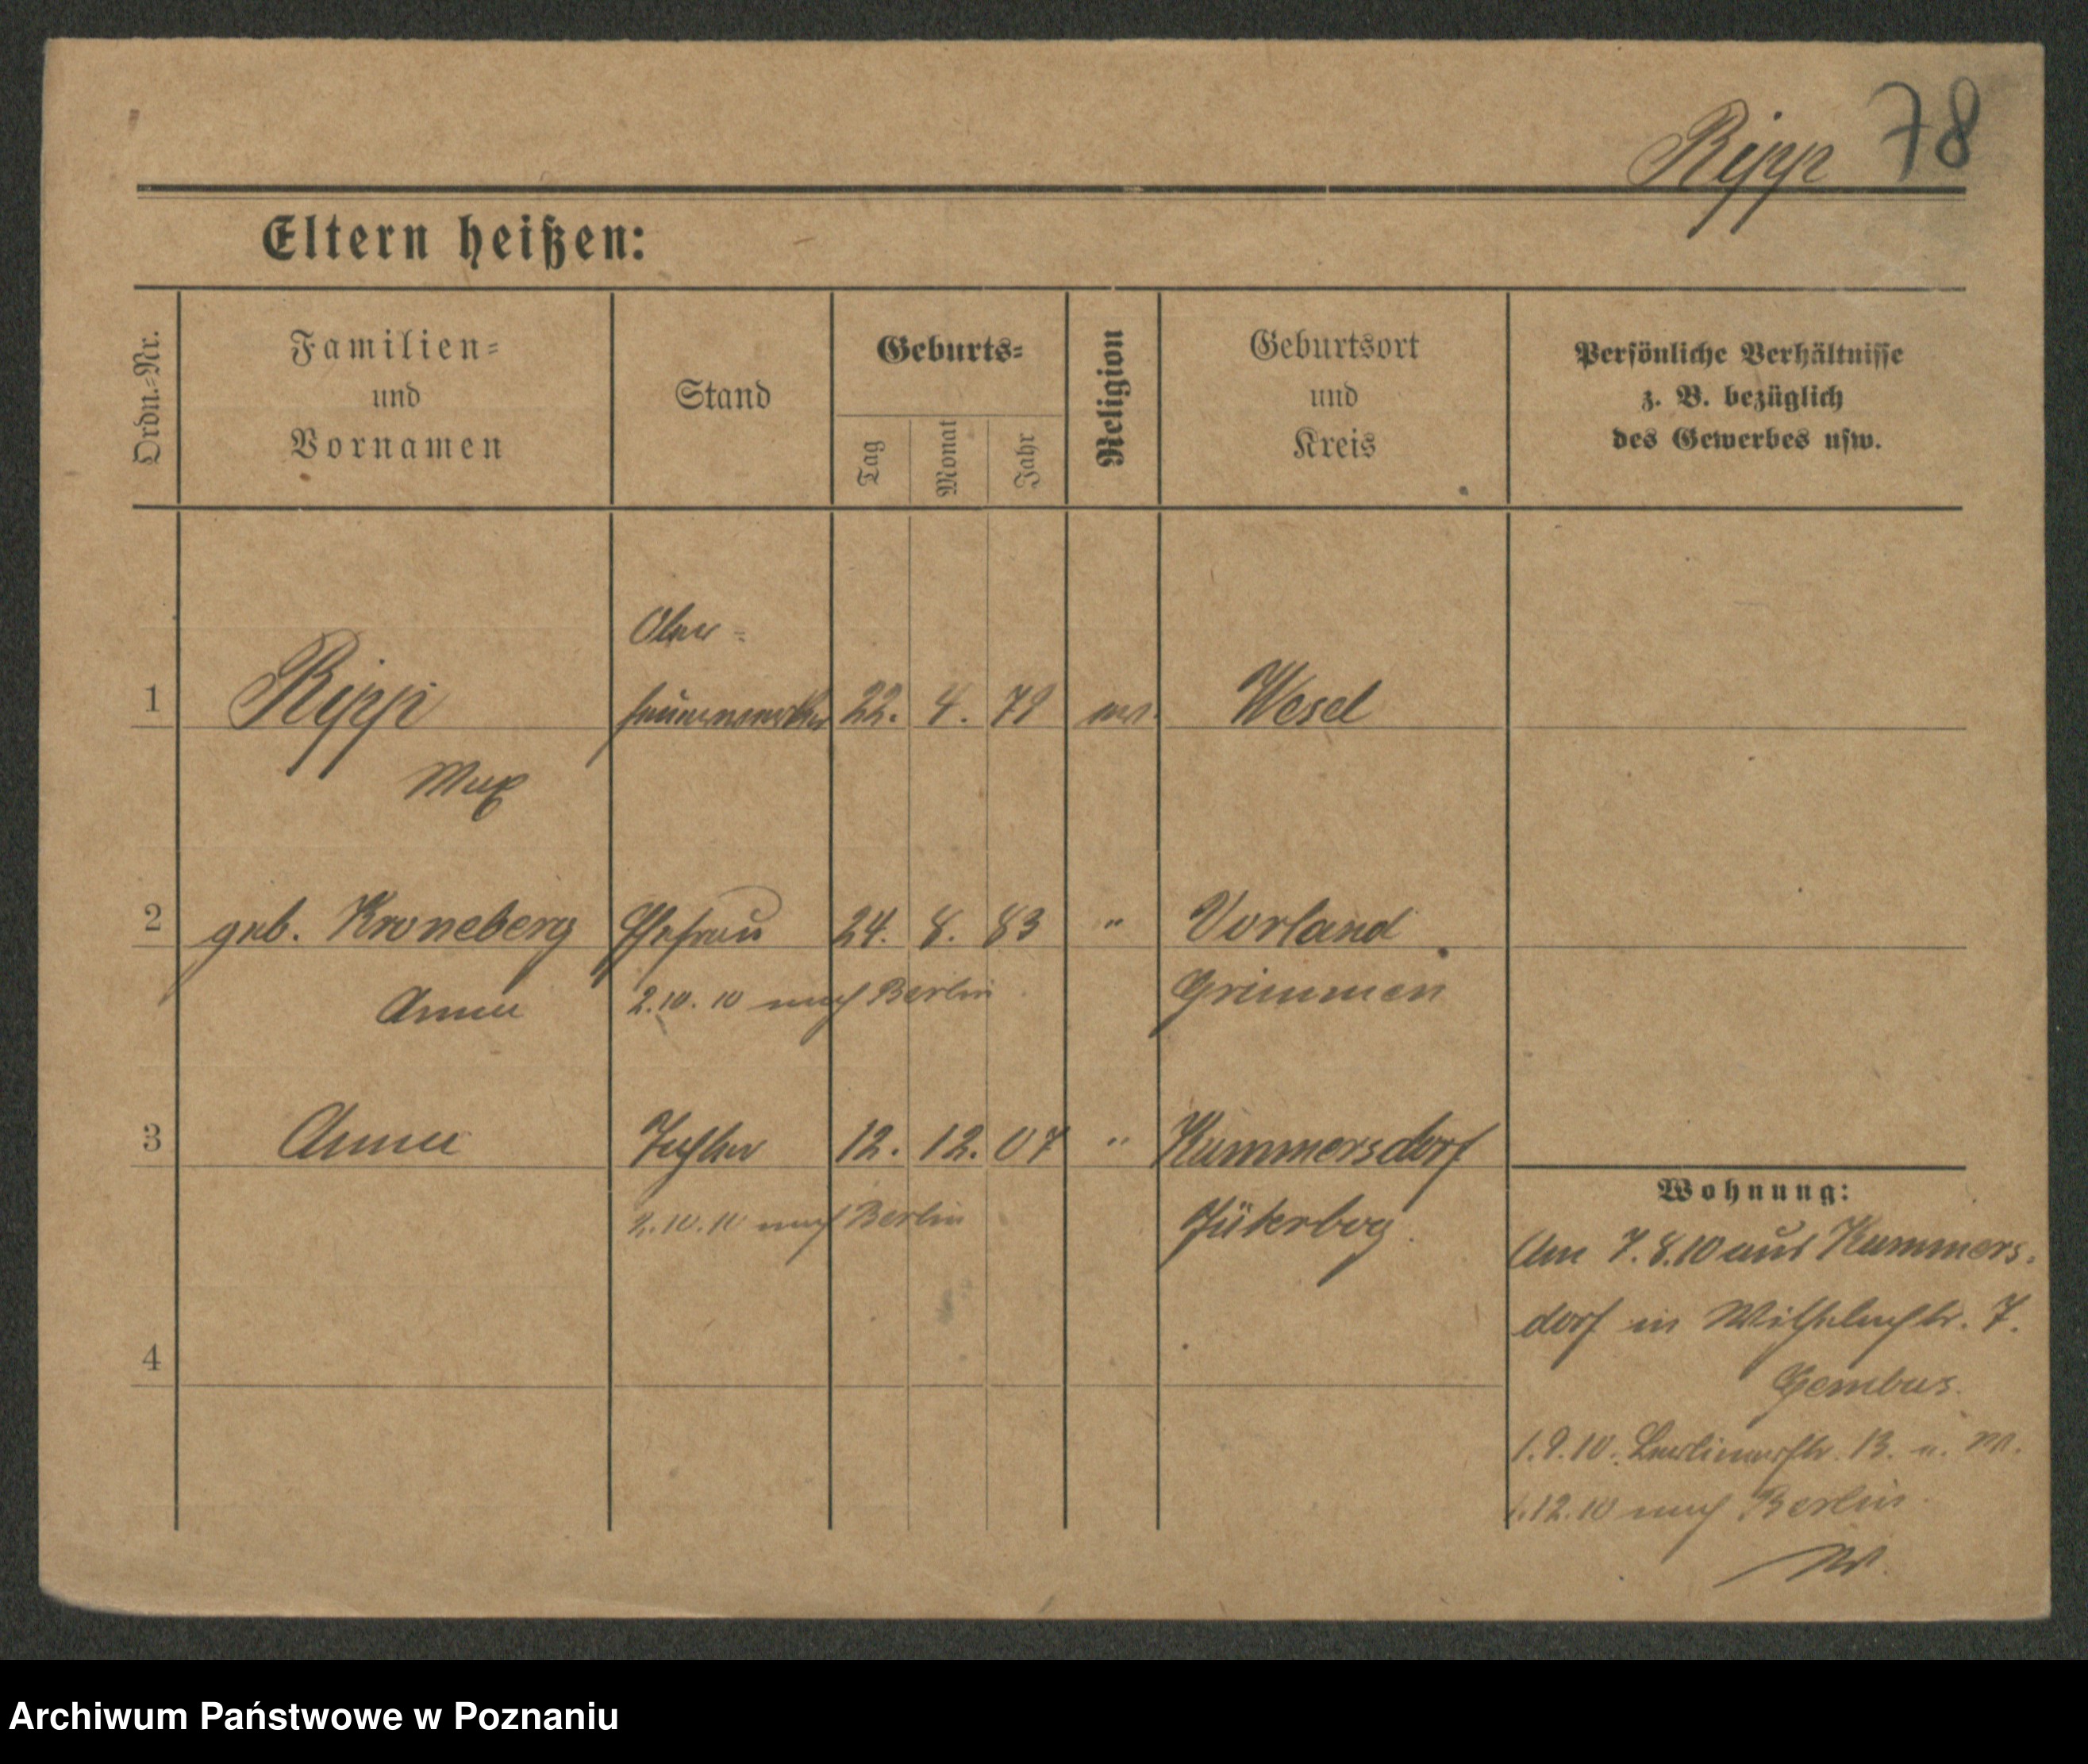 Ripp 78
Eltern heißen:
Ordn.-Nr.
Familien-
und
Vornamen
Stand
Geburts-
Tag
Monat
Jahr
Religion
Geburtsort
und
Kreis
Persönliche Verhältnisse
z. B. bezüglich
des Gewerbes usw.
Ober-
1 Ripp feuerwerker 22. 4. 79 ev. Wesel
Max
2 geb. Kroneberg Ehefrau 24. 8. 83 " Vorland
Anna 2.10.10 nach Berlin Grimmen
3 Anna Tochter 12. 12. 07 " Kummersdorf
2.10.10 nach Berlin Jüterbog.
4
Wohnung:
Am 7.8.10 aus Kummers-
dorf in Wilhelmstr. 7.
Gembus.
1.9.10. Berlinerstr. 13. u. M.
1.12.10 nach Berlin.
Archiwum Państwowe w Poznaniu